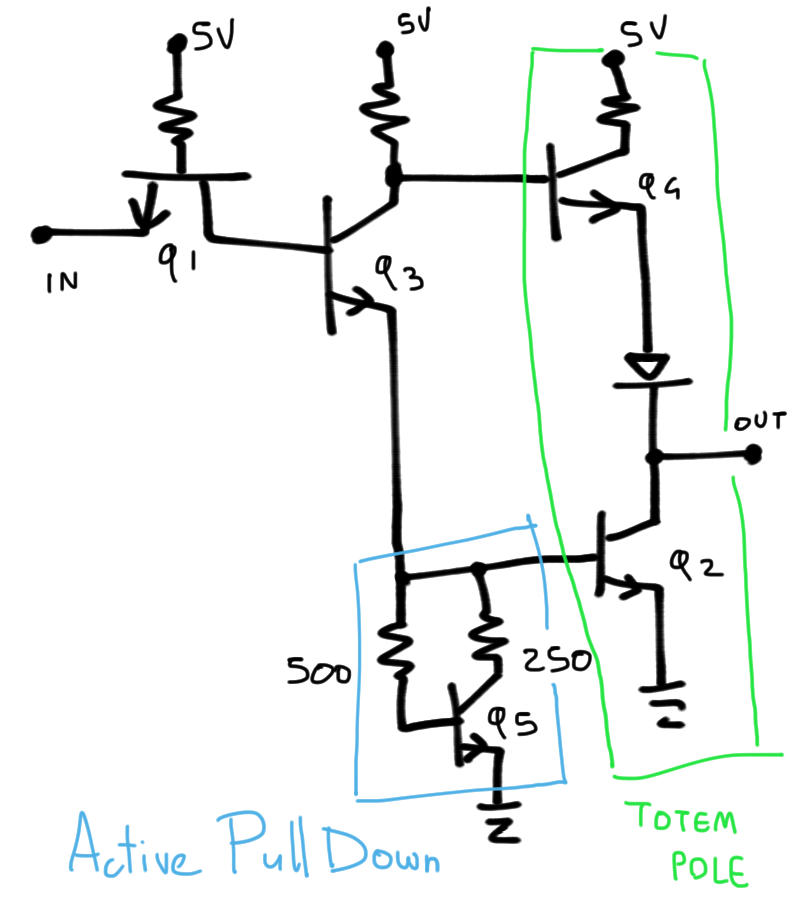 5V
5V
5V
Q4
Q1
IN
Q3
OUT
Q2
500
250
Q5
Active Pull Down
TOTEM
POLE